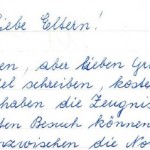 iebe Eltern!
en, aber lieben Gr
el schreiben, koste
haben die Zeugnis
ten Besuch können
nzwischen die No